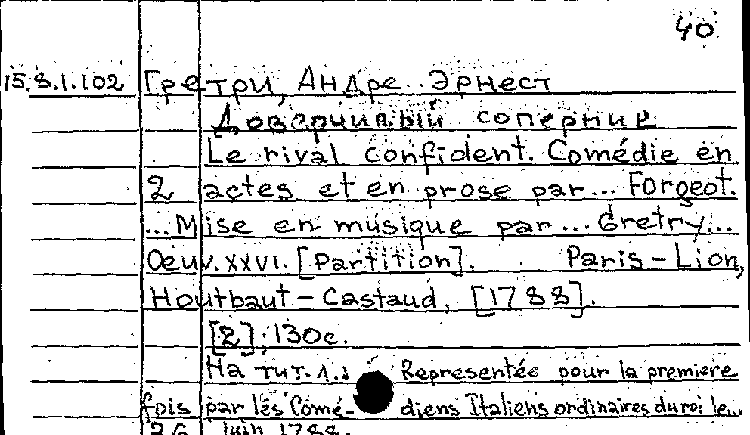 40
15.8.1.102 Гретри, Андре Эрнест
Доверчивый соперник
Le rival confident. Comédie en
2 actes et en prose par... Forgeot.
...Mise en musique par... Gretry...
Oeuv. XXVI. [Partition]. Paris-Lion,
Houtbaut-Castaud, [1788].
[2], 130 с.
На тит. л.: Representée pour la premiere
fois par lés Comé- diens Italiens ordinaires du roi le...
26 juin 1788.